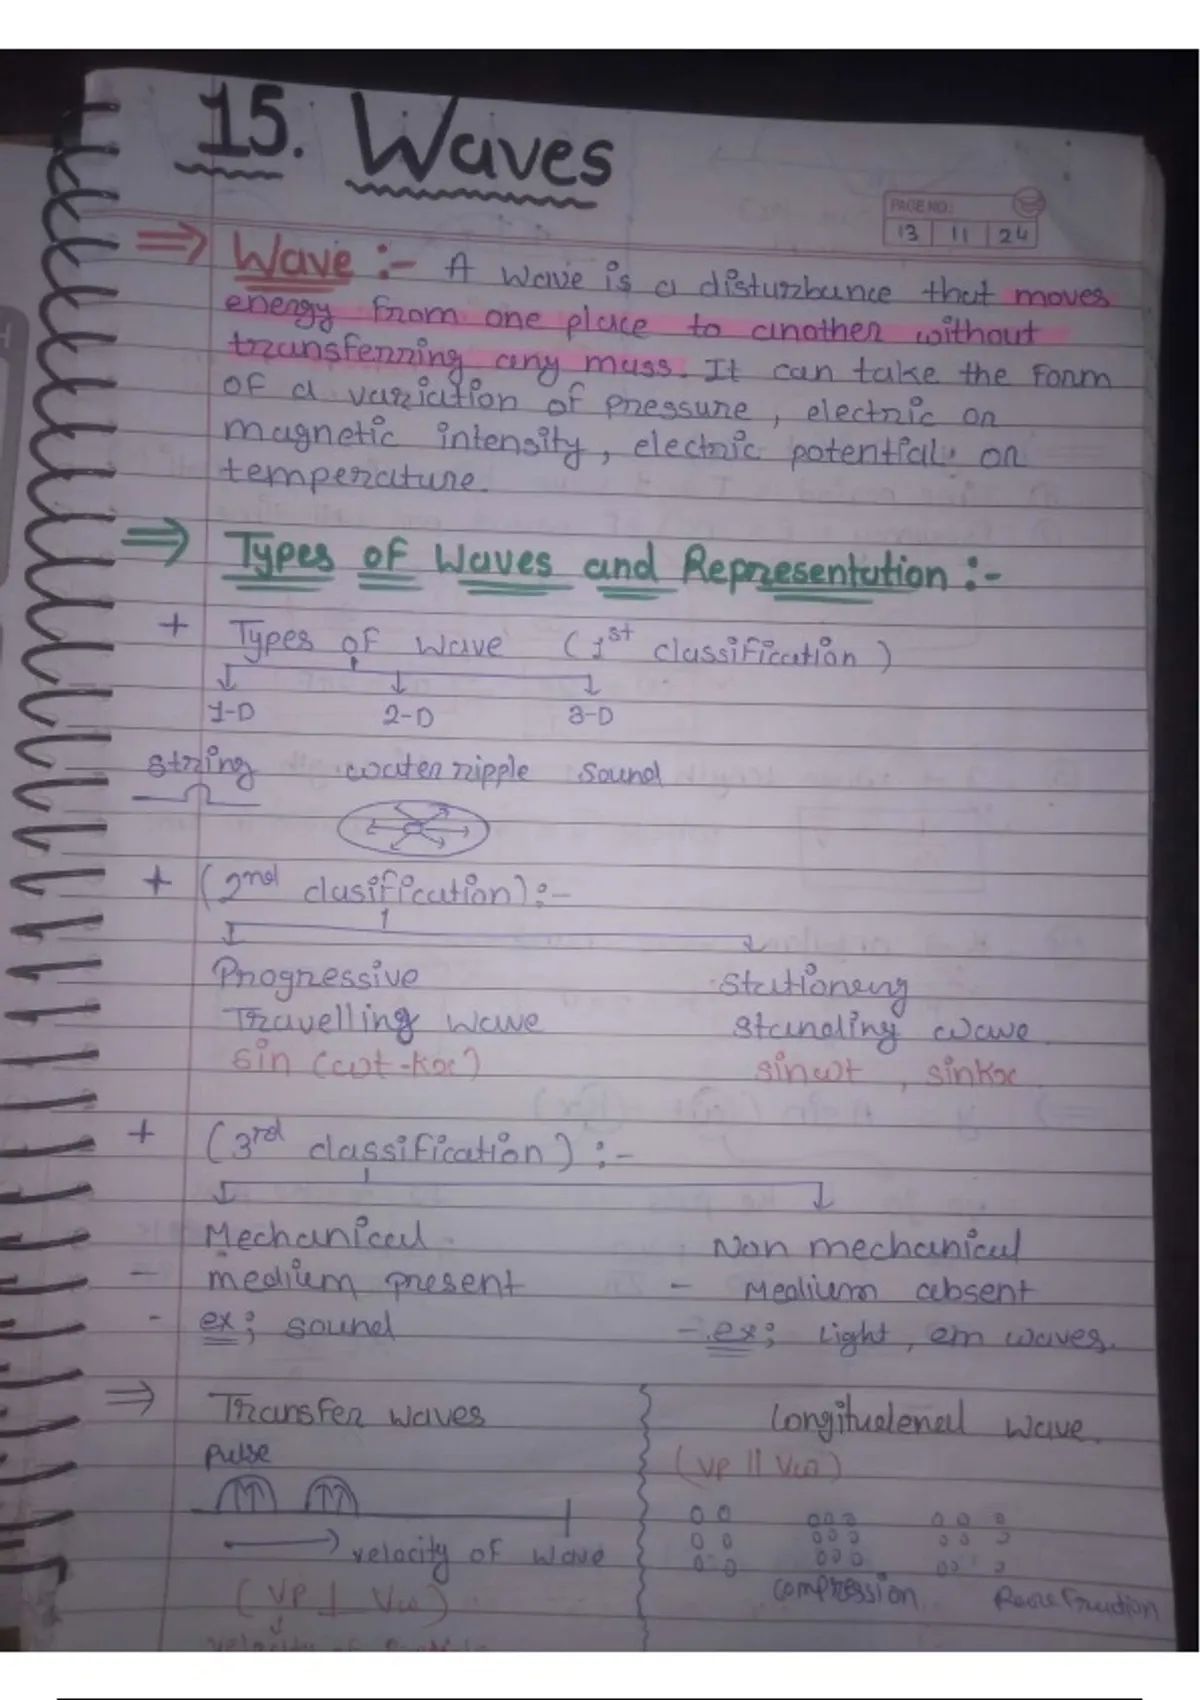 15. Waves
PAGE NO.:
13 11 24
⇒ Wave :- A wave is a disturbance that moves
energy from one place to another without
transferring any mass. It can take the form
of a variation of pressure, electric or
magnetic intensity, electric potential or
temperature.
⇒ Types of Waves and Representation :-
+ Types of wave (1st classification)
1-D 2-D 3-D
string water ripple sound
+ (2nd clasification) :-
Progressive Stationary
Travelling wave standing wave
sin (ωt - kx) sinωt, sinkx
+ (3rd classification) :-
Mechanical Non mechanical
- medium present - Medium absent
- ex; sound - ex; Light, em waves.
⇒ Transfer waves Longitudenal wave.
pulse (VP || Vω)
→ velocity of wave compression Rarefraction
(VP ⊥ Vω)
velocity of